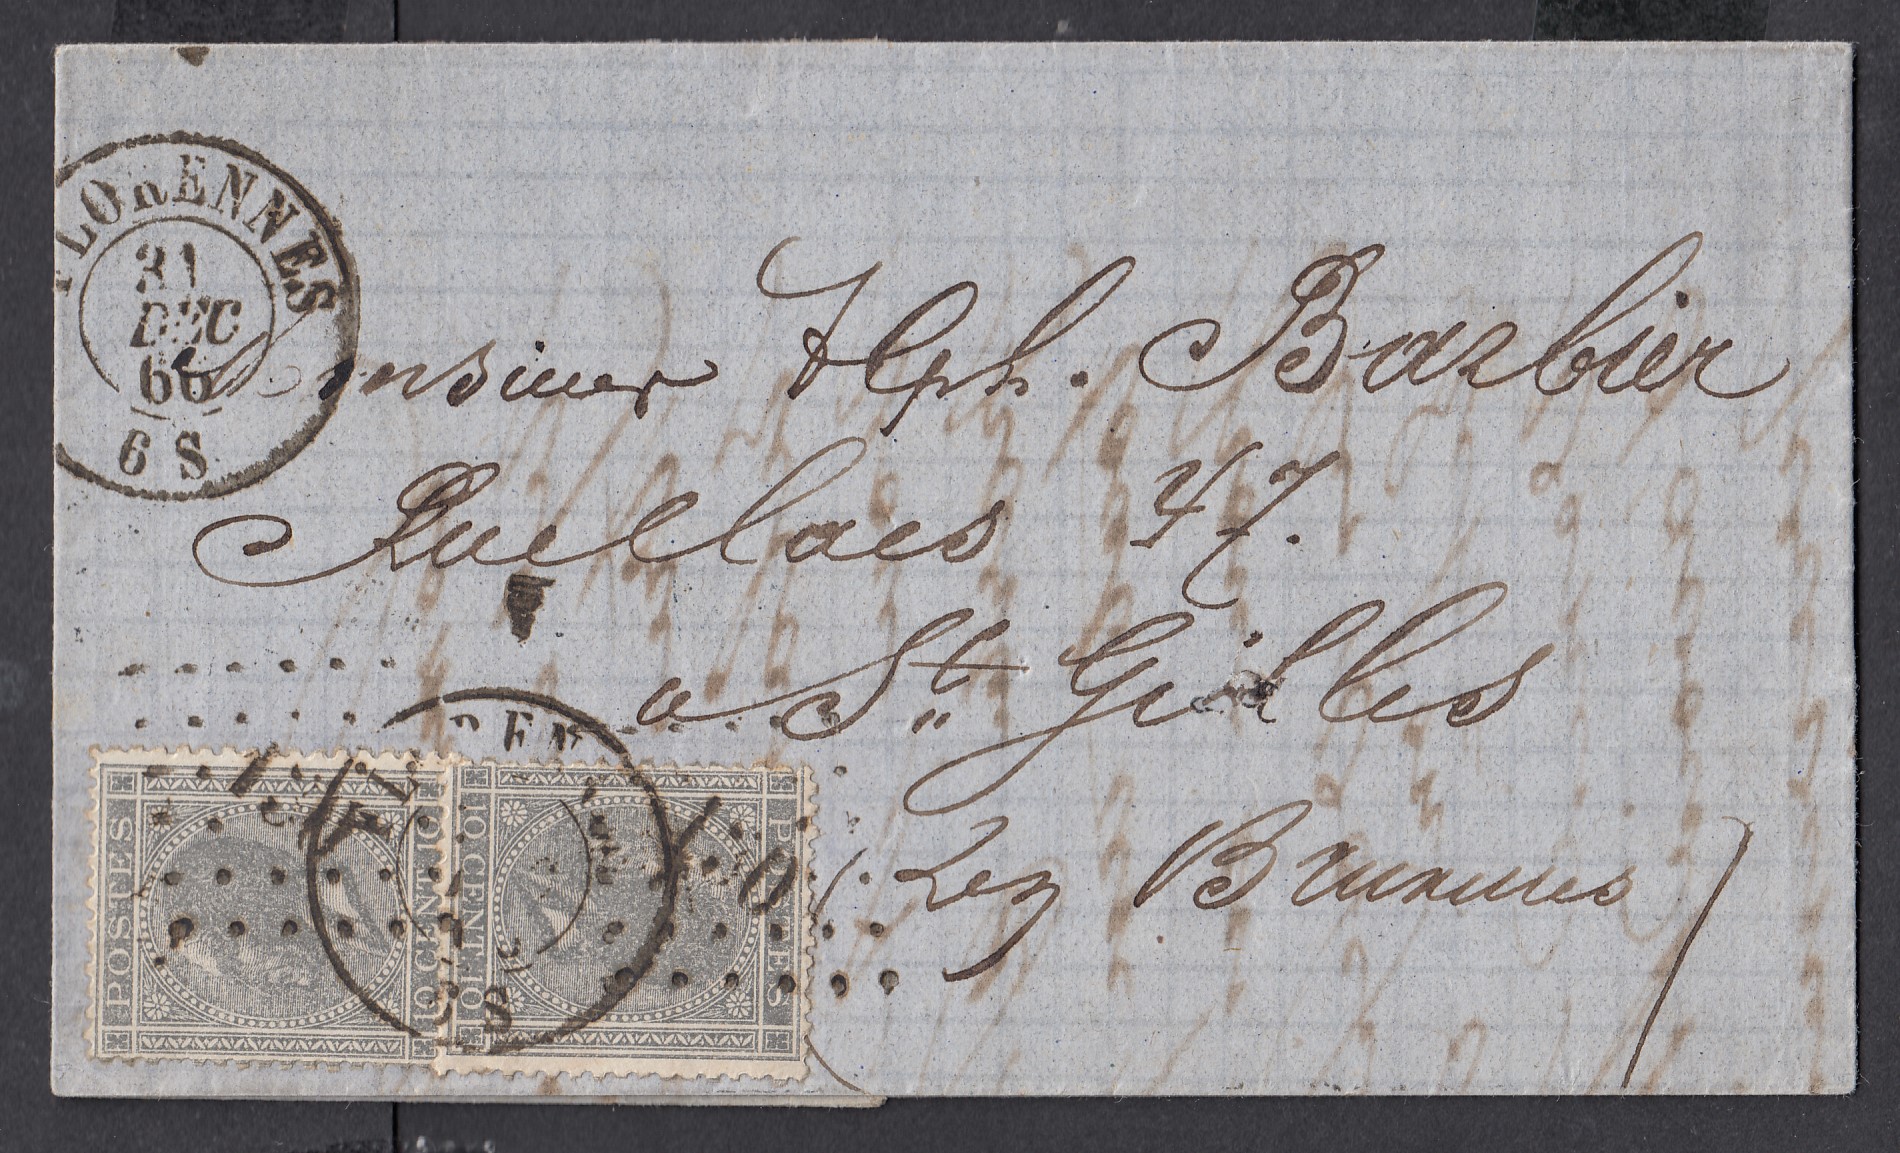 FLORENNES
31
DEC
66
6 S
Monsieur Alph. Barbier
Rue Claes 47.
a St Gilles
Lez Bruxuues
POSTES
10 CENT. 10
10 CENT. 10
POSTES